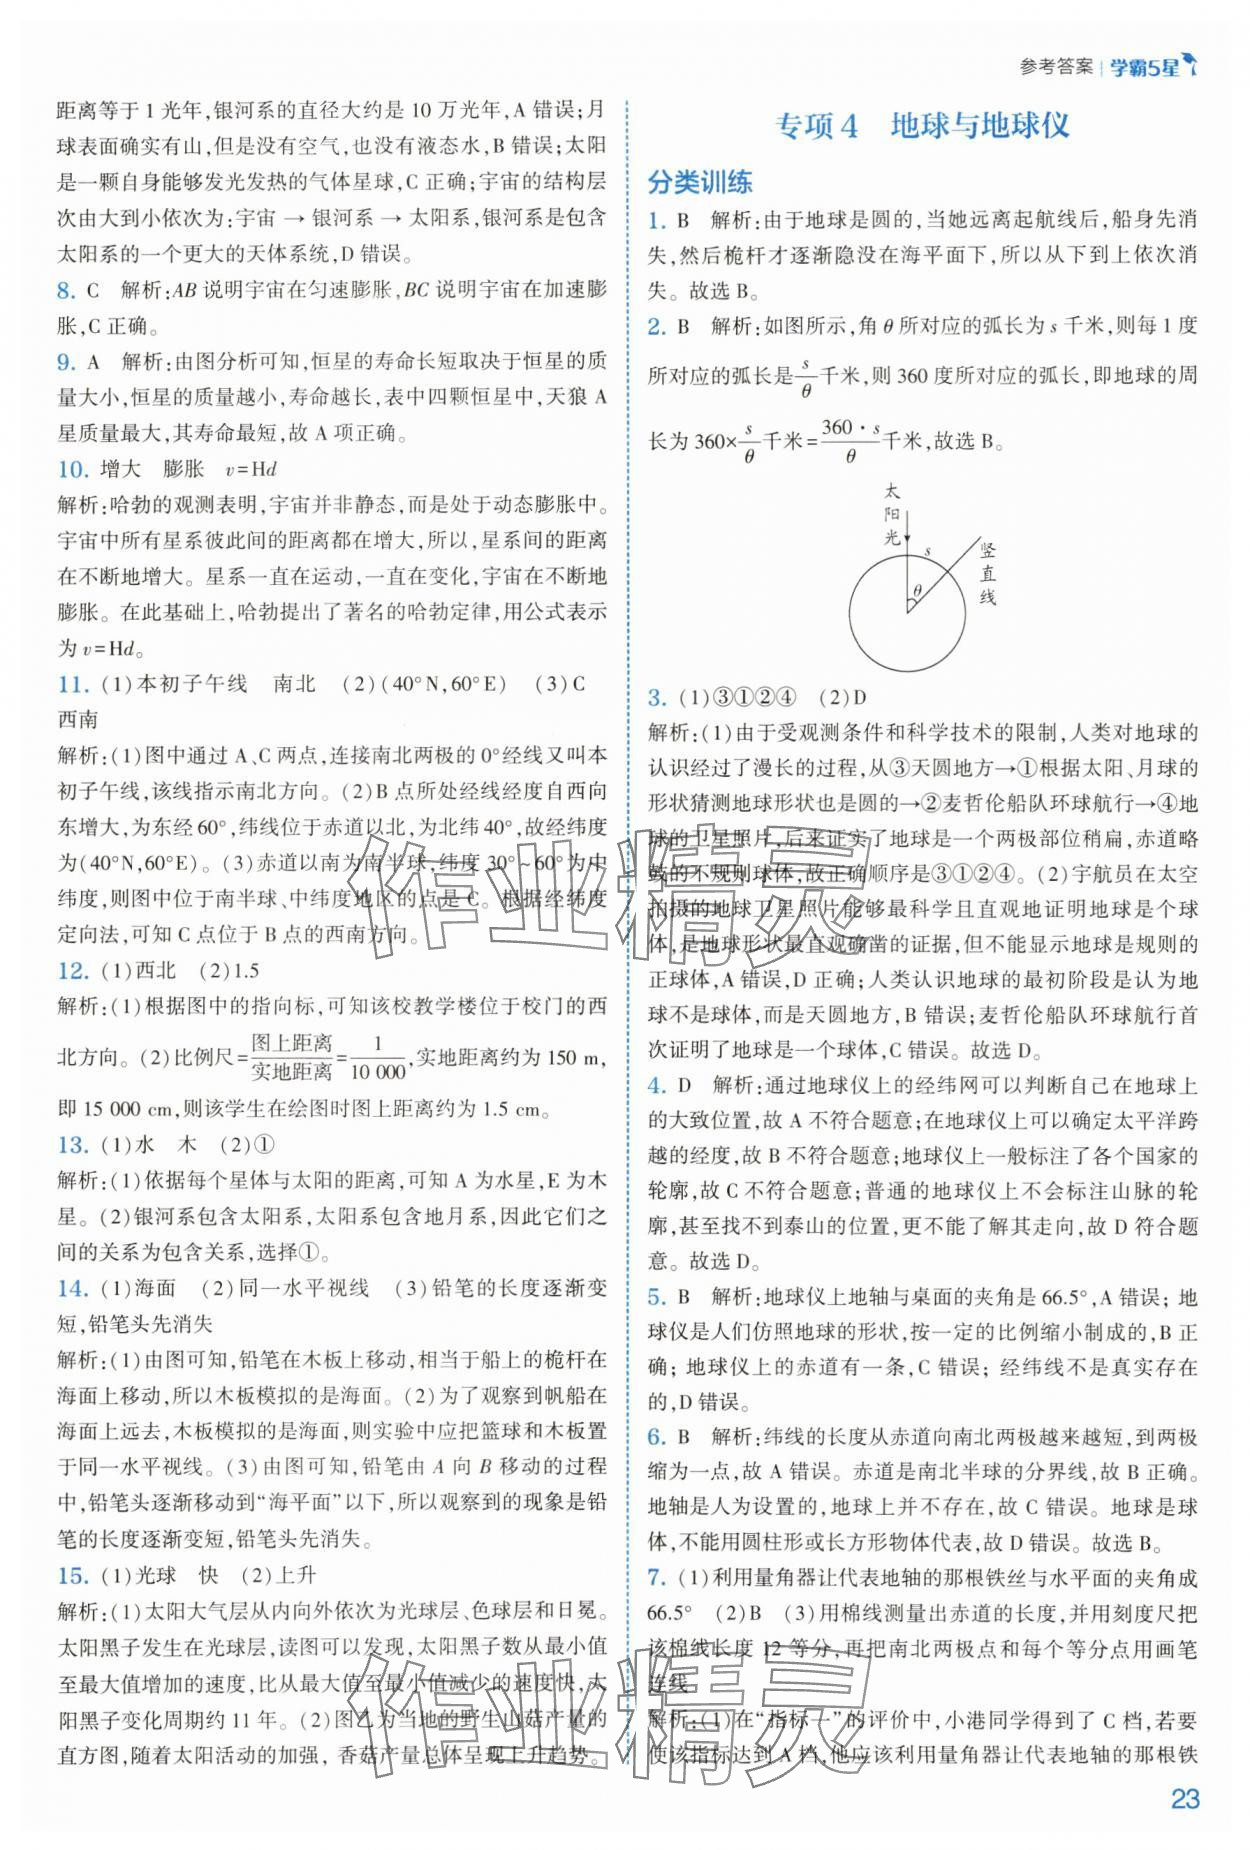 参考答案 学霸5星
距离等于1光年,银河系的直径大约是10万光年,A错误;月
球表面确实有山,但是没有空气,也没有液态水,B错误;太阳
是一颗自身能够发光发热的气体星球,C正确;宇宙的结构层
次由大到小依次为:宇宙→银河系→太阳系,银河系是包含
太阳系的一个更大的天体系统,D错误。
8. C 解析:AB说明宇宙在匀速膨胀,BC说明宇宙在加速膨
胀,C正确。
9. A 解析:由图分析可知,恒星的寿命长短取决于恒星的质
量大小,恒星的质量越小,寿命越长,表中四颗恒星中,天狼A
星质量最大,其寿命最短,故A项正确。
10. 增大 膨胀 v=Hd
解析:哈勃的观测表明,宇宙并非静态,而是处于动态膨胀中。
宇宙中所有星系彼此间的距离都在增大,所以,星系间的距离
在不断地增大。星系一直在运动,一直在变化,宇宙在不断地
膨胀。在此基础上,哈勃提出了著名的哈勃定律,用公式表示
为v=Hd。
11. (1)本初子午线 南北 (2)(40°N,60°E) (3)C
西南
解析:(1)图中通过A、C两点,连接南北两极的0°经线又叫本
初子午线,该线指示南北方向。(2)B点所处经线经度自西向
东增大,为东经60°,纬线位于赤道以北,为北纬40°,故经纬度
为(40°N,60°E)。(3)赤道以南为南半球,纬度30°~60°为中
纬度,则图中位于南半球、中纬度地区的点是C。根据经纬度
定向法,可知C点位于B点的西南方向。
12. (1)西北 (2)1.5
解析:(1)根据图中的指向标,可知该校教学楼位于校门的西
北方向。(2)比例尺=图上距离/实地距离=1/10 000,实地距离约为150 m,
即15 000 cm,则该学生在绘图时图上距离约为1.5 cm。
13. (1)水 木 (2)①
解析:(1)依据每个星体与太阳的距离,可知A为水星,E为木
星。(2)银河系包含太阳系,太阳系包含地月系,因此它们之
间的关系为包含关系,选择①。
14. (1)海面 (2)同一水平视线 (3)铅笔的长度逐渐变
短,铅笔头先消失
解析:(1)由图可知,铅笔在木板上移动,相当于船上的桅杆在
海面上移动,所以木板模拟的是海面。(2)为了观察到帆船在
海面上远去,木板模拟的是海面,则实验中应把篮球和木板置
于同一水平视线。(3)由图可知,铅笔由A向B移动的过程
中,铅笔头逐渐移动到“海平面”以下,所以观察到的现象是铅
笔的长度逐渐变短,铅笔头先消失。
15. (1)光球 快 (2)上升
解析:(1)太阳大气层从内向外依次为光球层、色球层和日冕。
太阳黑子发生在光球层,读图可以发现,太阳黑子数从最小值
至最大值增加的速度,比从最大值至最小值减少的速度快,太
阳黑子变化周期约11年。(2)图乙为当地的野生山菇产量的
直方图,随着太阳活动的加强,香菇产量总体呈现上升趋势。
专项4 地球与地球仪
分类训练
1. B 解析:由于地球是圆的,当她远离起航线后,船身先消
失,然后桅杆才逐渐隐没在海平面下,所以从下到上依次消
失。故选B。
2. B 解析:如图所示,角θ所对应的弧长为s千米,则每1度
所对应的弧长是s/θ千米,则360度所对应的弧长,即地球的周
长为360×s/θ千米=360·s/θ千米,故选B。
太阳光
s
θ
竖直线
3. (1)③①②④ (2)D
解析:(1)由于受观测条件和科学技术的限制,人类对地球的
认识经过了漫长的过程,从③天圆地方→①根据太阳、月球的
形状猜测地球形状也是圆的→②麦哲伦船队环球航行→④地
球的卫星照片,后来证实了地球是一个两极部位稍扁,赤道略
鼓的不规则球体,故正确顺序是③①②④。(2)宇航员在太空
拍摄的地球卫星照片能够最科学且直观地证明地球是个球
体,是地球形状最直观确凿的证据,但不能显示地球是规则的
正球体,A错误,D正确;人类认识地球的最初阶段是认为地
球不是球体,而是天圆地方,B错误;麦哲伦船队环球航行首
次证明了地球是一个球体,C错误。故选D。
4. D 解析:通过地球仪上的经纬网可以判断自己在地球上
的大致位置,故A不符合题意;在地球仪上可以确定太平洋跨
越的经度,故B不符合题意;地球仪上一般标注了各个国家的
轮廓,故C不符合题意;普通的地球仪上不会标注山脉的轮
廓,甚至找不到泰山的位置,更不能了解其走向,故D符合题
意。故选D。
5. B 解析:地球仪上地轴与桌面的夹角是66.5°,A错误;地
球仪是人们仿照地球的形状,按一定的比例缩小制成的,B正
确;地球仪上的赤道有一条,C错误;经纬线不是真实存在
的,D错误。
6. B 解析:纬线的长度从赤道向南北两极越来越短,到两极
缩为一点,故A错误。赤道是南北半球的分界线,故B正确。
地轴是人为设置的,地球上并不存在,故C错误。地球是球
体,不能用圆柱形或长方形物体代表,故D错误。故选B。
7. (1)利用量角器让代表地轴的那根铁丝与水平面的夹角成
66.5° (2)B (3)用棉线测量出赤道的长度,并用刻度尺把
该棉线长度12等分,再把南北两极点和每个等分点用画笔
连线
解析:(1)在“指标一”的评价中,小港同学得到了C档,若要
使该指标达到A档,他应该利用量角器让代表地轴的那根铁
23
作业精灵
作业精灵